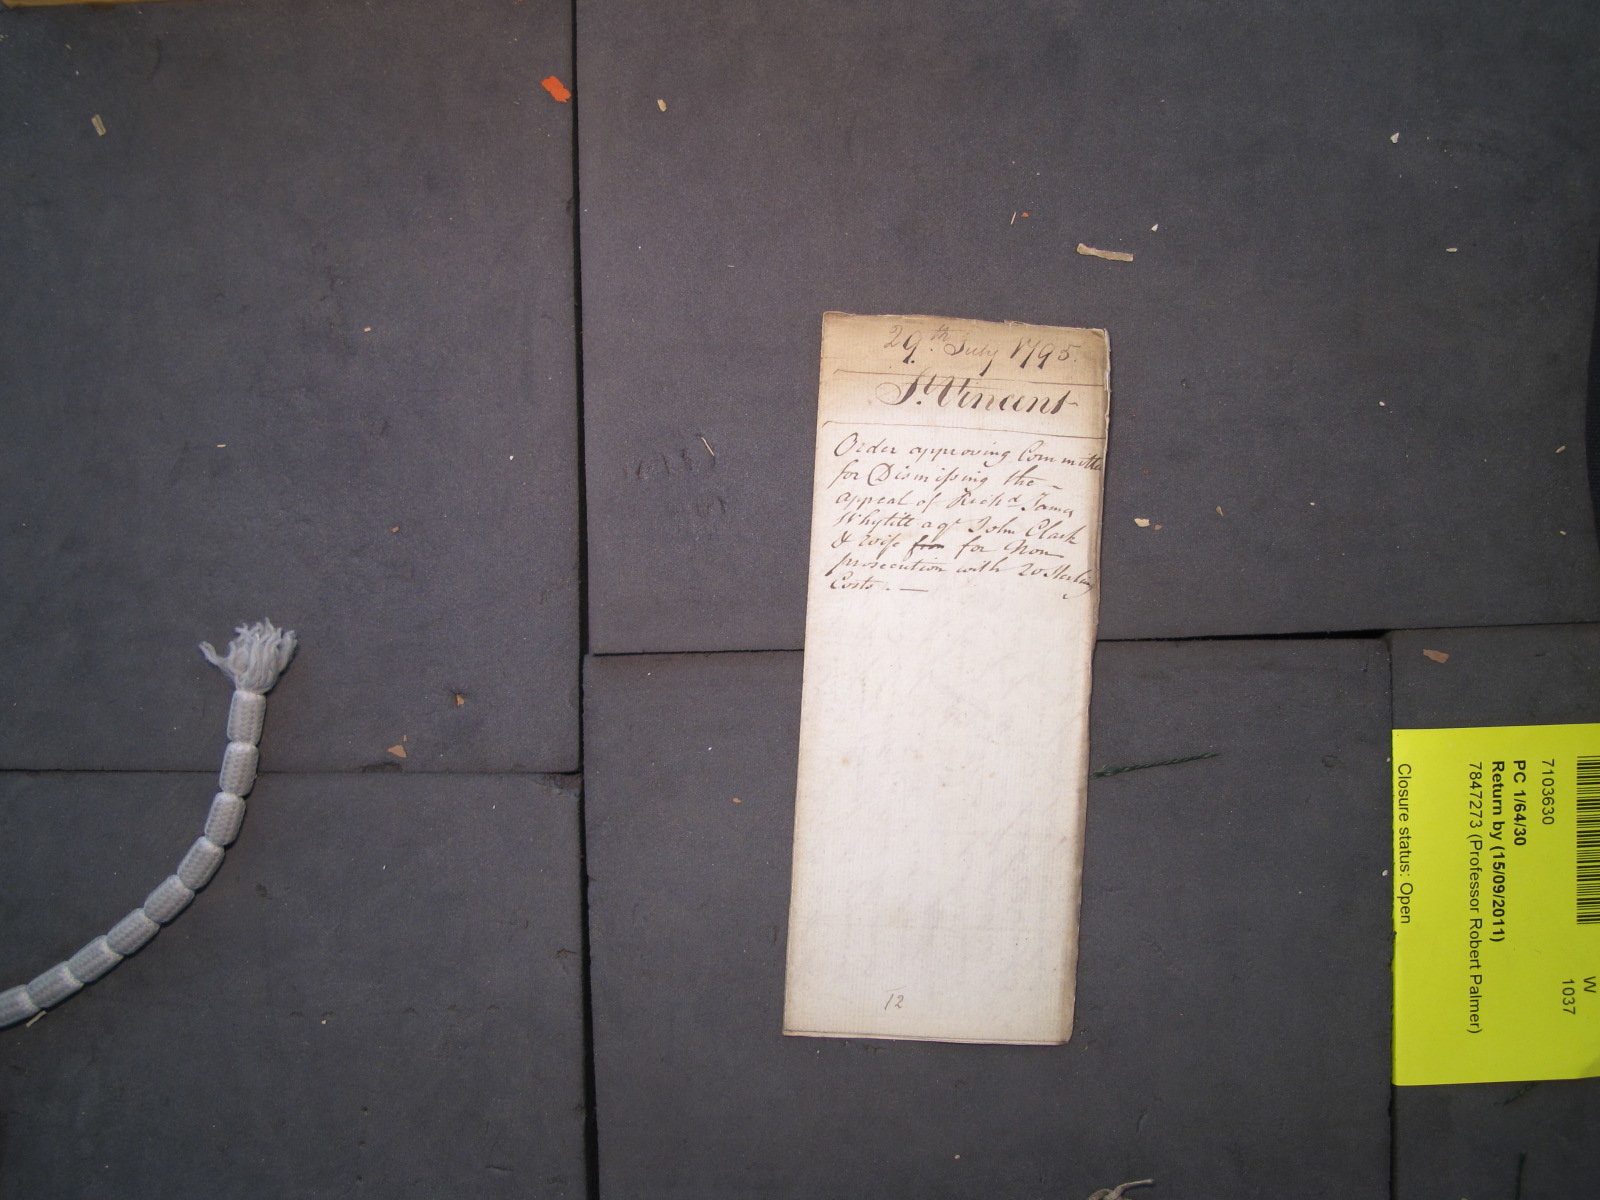 29th July 1795.
St. Vincent
Order approving Committee
for Dismissing the
appeal of Richd. James
Whytell agt. John Clark
& wife for for Non
prosecution with 20 Sterling
Costs. —
12
W
1037
7103630
PC 1/64/30
Return by (15/09/2011)
7847273 (Professor Robert Palmer)
Closure status: Open